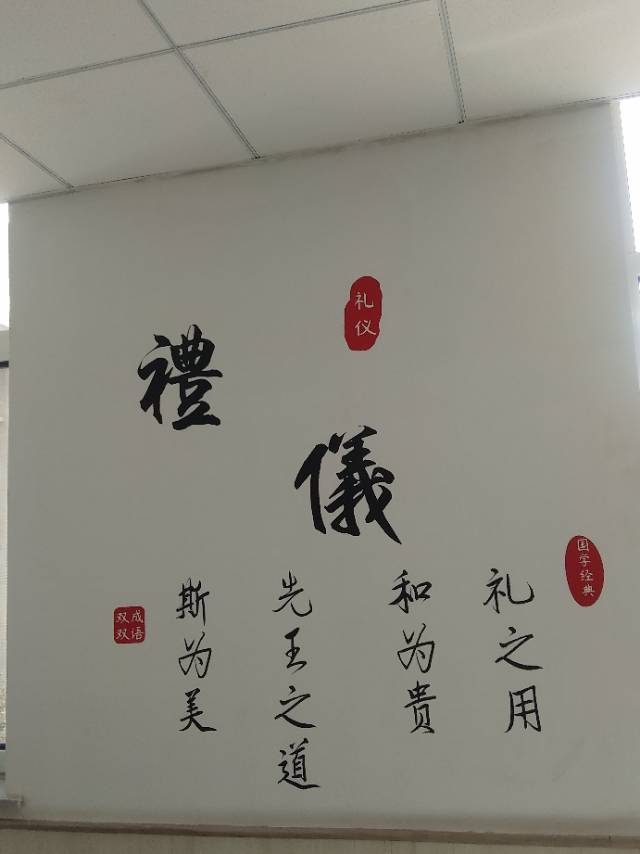 礼仪
禮
儀
国学经典
礼之用
和为贵
先王之道
斯为美
成语
双双